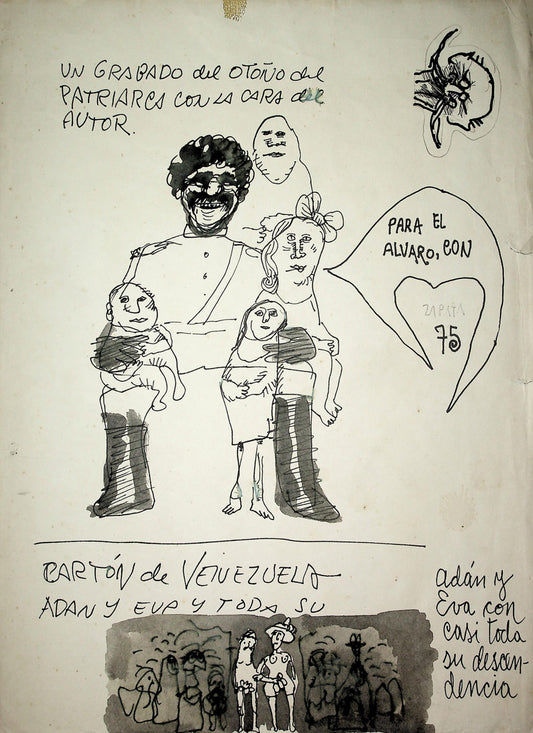 UN GRABADO del OTOÑO del
PATRIARCA CON LA CARA DEL
AUTOR.
PARA EL
ALVARO, CON
ZAPATA
75
CARTÓN de VENEZUELA
ADAN Y EVA Y TODA SU
Adán y
Eva con
casi toda
su descen-
dencia